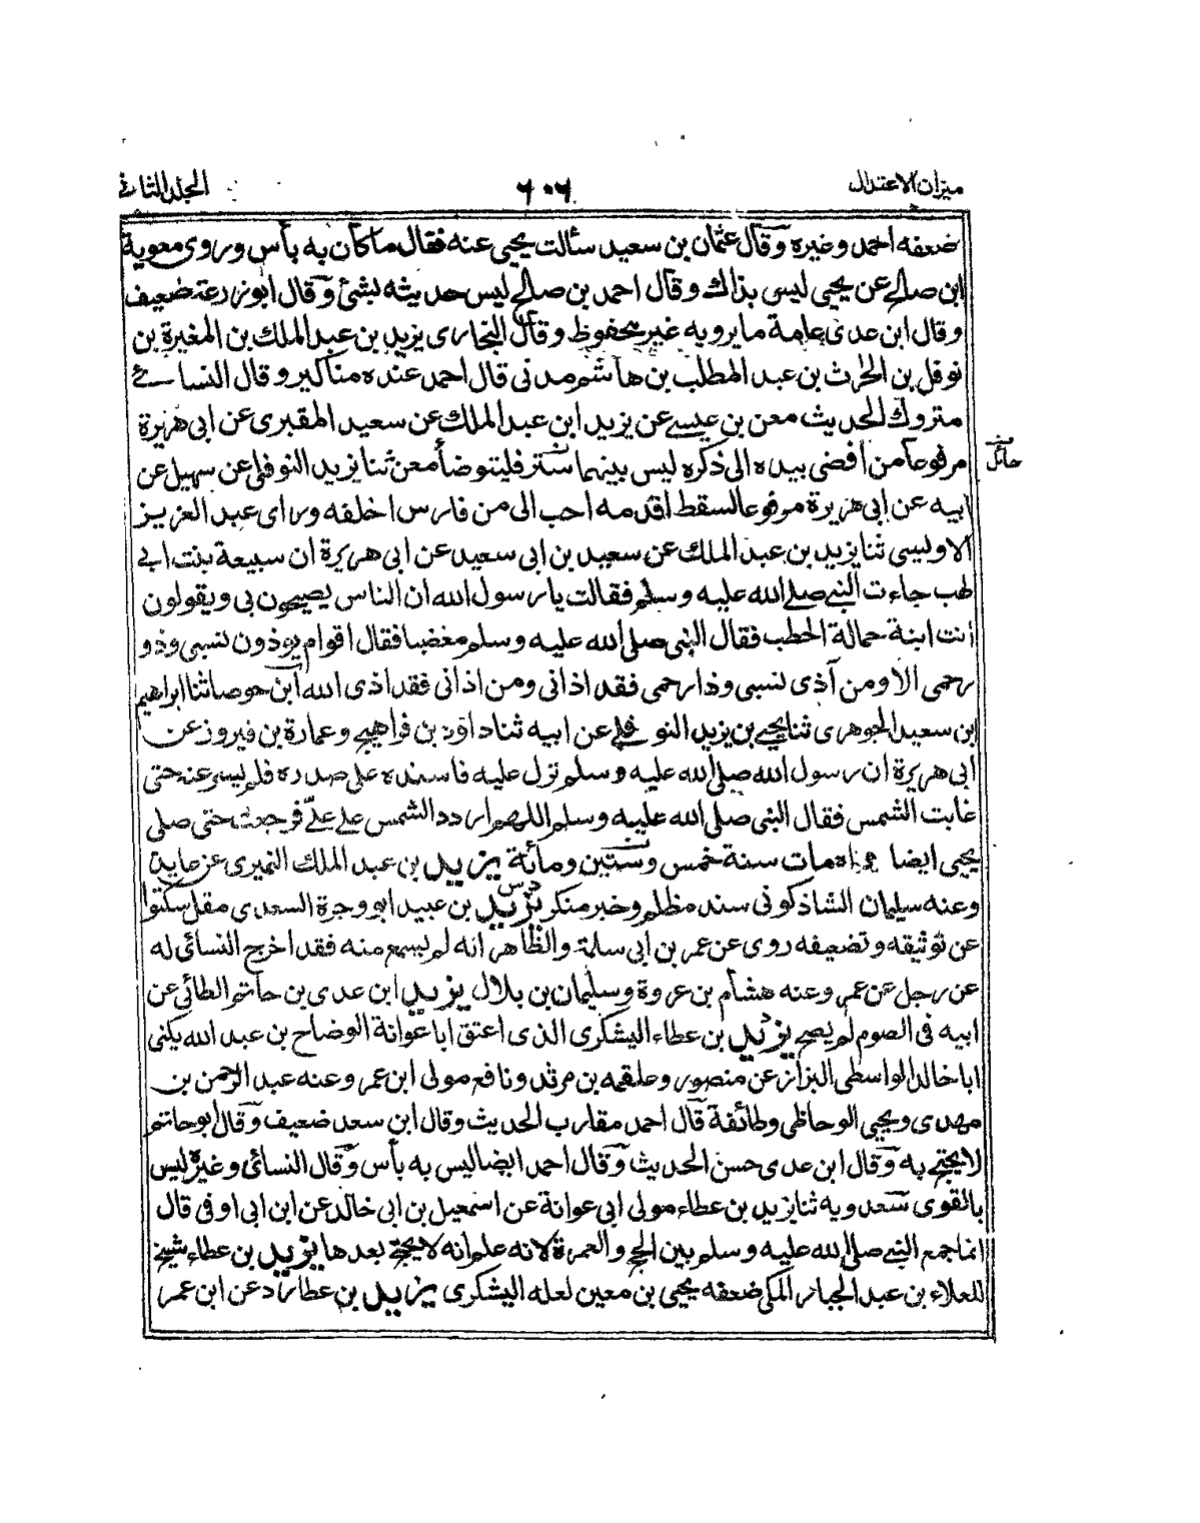 ميزان الاعتدال
٦٠٦
المجلد الثاني
ضعفه احمد وغيره وقال عثمان بن سعيد سئالت يحيى عنه فقال ماكان به بأس وروى معوية
ابن صالح عن يحيى ليس بذاك وقال احمد بن صالح ليس حديثه بشئ وقال ابوزرعة ضعيف
وقال ابن عدى عامة ما يرويه غير محفوظ وقال البخارى يزيد بن عبد الملك بن المغيرة بن
نوفل بن الحرث بن عبد المطلب بن هاشم مدنى قال احمد عنده مناكير وقال النسائے
متروك الحديث معن بن عيسے عن يزيد ابن عبد الملك عن سعيد المقبرى عن ابى هريرة
مرفوعا من افضى بيده الى ذكره ليس بينهما ستر فليتوضأ معن ثنا يزيد النوفلى عن سهيل عن
حائل
ابيه عن ابى هريرة مرفوعا لسقط اقدمه احب الى من فارس اخلفه وراى عبد العزيز
الاويسى ثنا يزيد بن عبد الملك عن سعيد بن ابى سعيد عن ابى هريرة ان سبيعة بنت ابے
لهب جاءت النبے صلے الله عليه وسلم فقالت يا رسول الله ان الناس يصيحون بى ويقولون
انت ابنة حمالة الحطب فقال النبى صلى الله عليه وسلم مغضبا فقال اقوام يوذون نسبى وذو
رحمى الا ومن آذى نسبى وذا رحمى فقد اذانى ومن اذانى فقد اذى الله ابن حوصا ثنا ابراهيم
ابن سعيد الجوهرى ثنا يحيے بن يزيد النوفلے عن ابيه ثنا داؤد بن فراهيج وعمارة بن فيروز عن
ابى هريرة ان رسول الله صلى الله عليه وسلم نزل عليه فاسنده على صدره فلم يسر عنه حتى
غابت الشمس فقال النبى صلى الله عليه وسلم اللهم اردد الشمس على علىّ فرجعت حتى صلى
يحيى ايضا مات سنة خمس وستين ومأئة يزيد بن عبد الملك النميرى عن عايذ
وعنه سليمان الشاذكونى سند مظلم وخبر منكر يزيد بن عبيد ابو وجرة السعدى مقل سكتوا
عن توثيقه وتضعيفه روى عن عمر بن ابى سلمة والظاهر انه لم يسمع منه فقد اخرج النسائى له
عن رجل عن عمر وعنه هشام بن عروة وسليمان بن بلال يزيد ابن عدى بن حاتم الطائى عن
ابيه فى الصوم لم يصح يزيد بن عطاء اليشكرى الذى اعتق ابا عوانة الوضاح بن عبد الله يكنى
ابا خالد الواسطى البزاز عن منصور وعلقمه بن مرثد ونافع مولى ابن عمر وعنه عبد الرحمن بن
مهدى ويحيى الوحاظى وطائفة قال احمد مقارب الحديث وقال ابن سعد ضعيف وقال ابو حاتم
لا يحتج به وقال ابن عدى حسن الحديث وقال احمد ايضا ليس به بأس وقال النسائى وغيره ليس
بالقوى سعدويه ثنا يزيد بن عطاء مولى ابى عوانة عن اسمعيل بن ابى خالد عن ابن ابى اوفى قال
انما جمع النبے صلى الله عليه وسلم بين الحج والعمرة لانه علم انه لا يحج بعدها يزيد بن عطاء شيخ
للعلاء بن عبد الجبار المكى ضعفه يحيى بن معين لعله اليشكرى يزيد بن عطارد عن ابن عمر